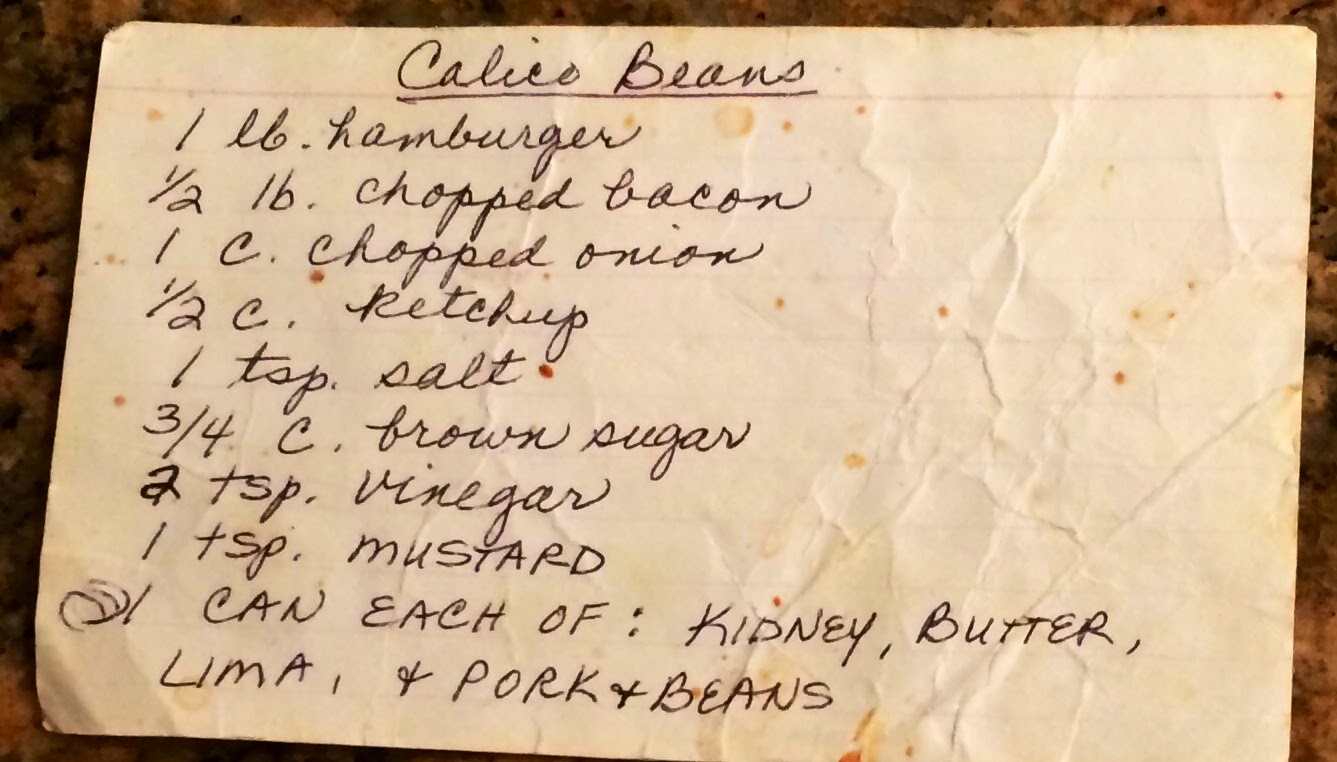 Calico Beans
1 lb. hamburger
1/2 lb. chopped bacon
1 c. chopped onion
1/2 c. ketchup
1 tsp. salt
3/4 c. brown sugar
2 tsp. vinegar
1 tsp. MUSTARD
1 CAN EACH OF: KIDNEY, BUTTER,
LIMA, & PORK & BEANS